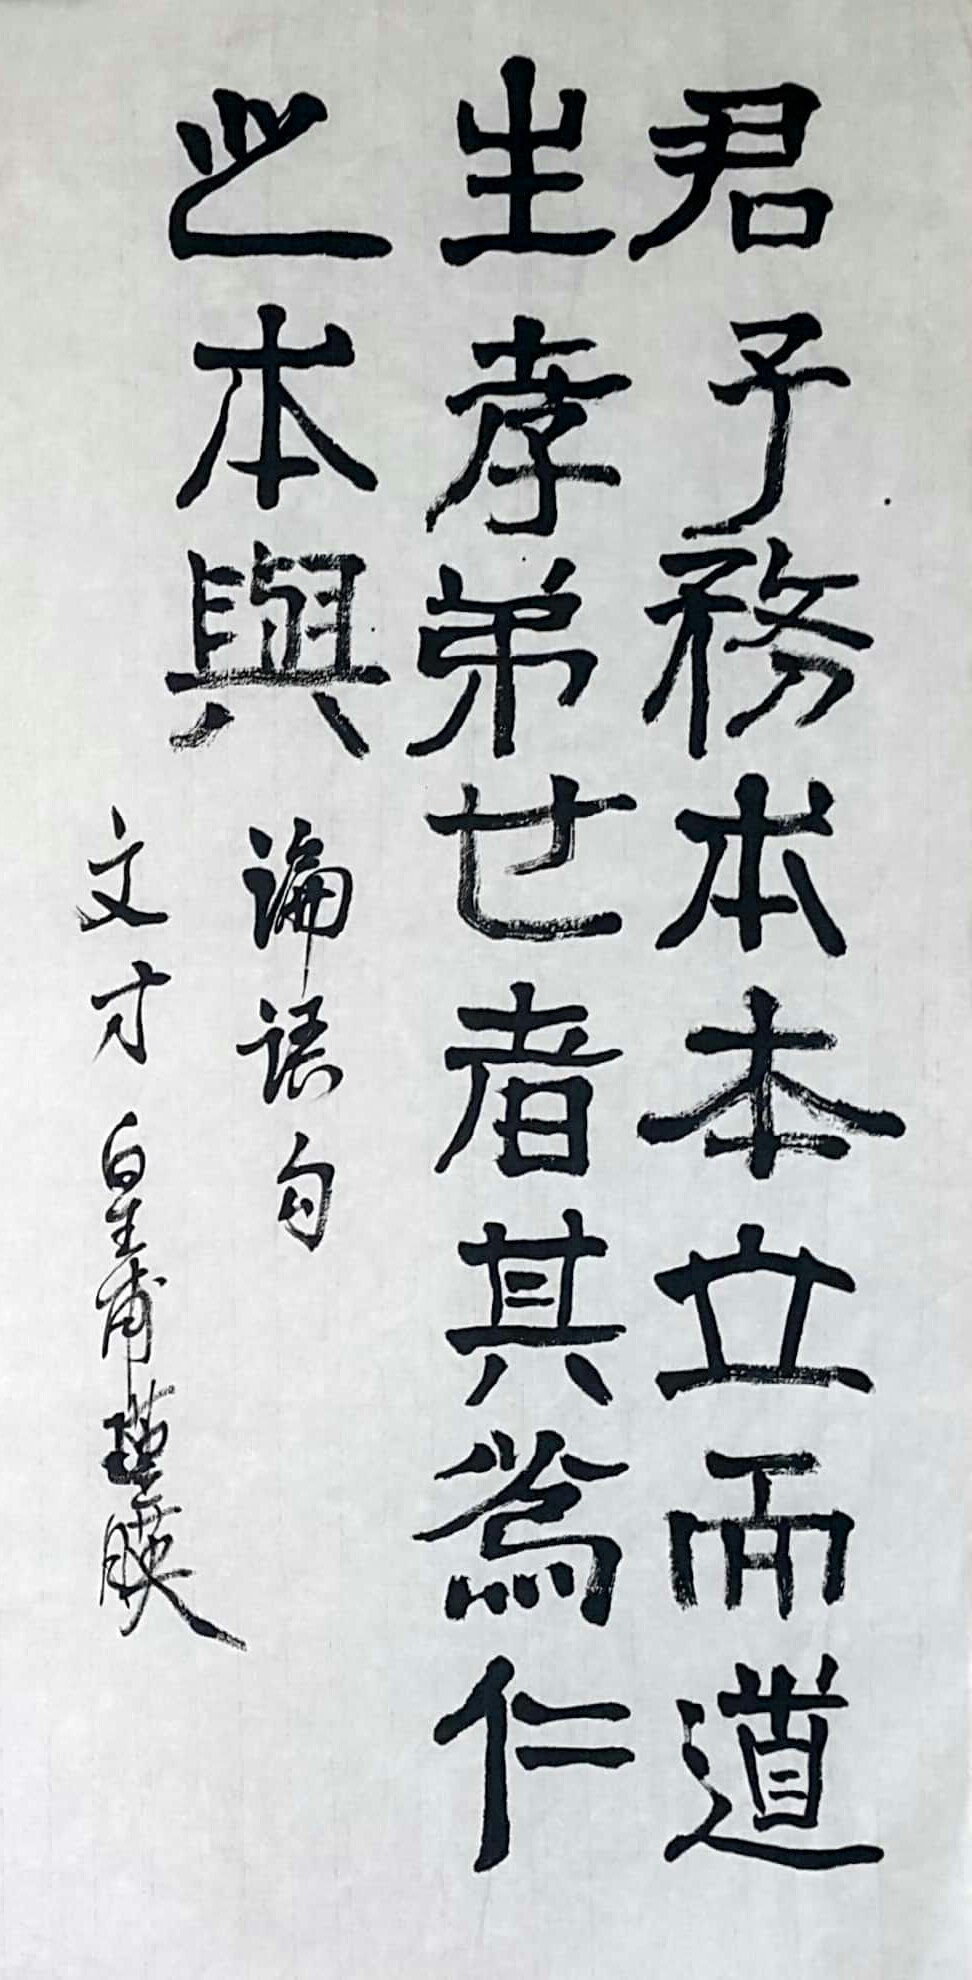 君子務本本立而道
生孝弟也者其為仁
之本與
論語句
文才皇甫瑾瑛